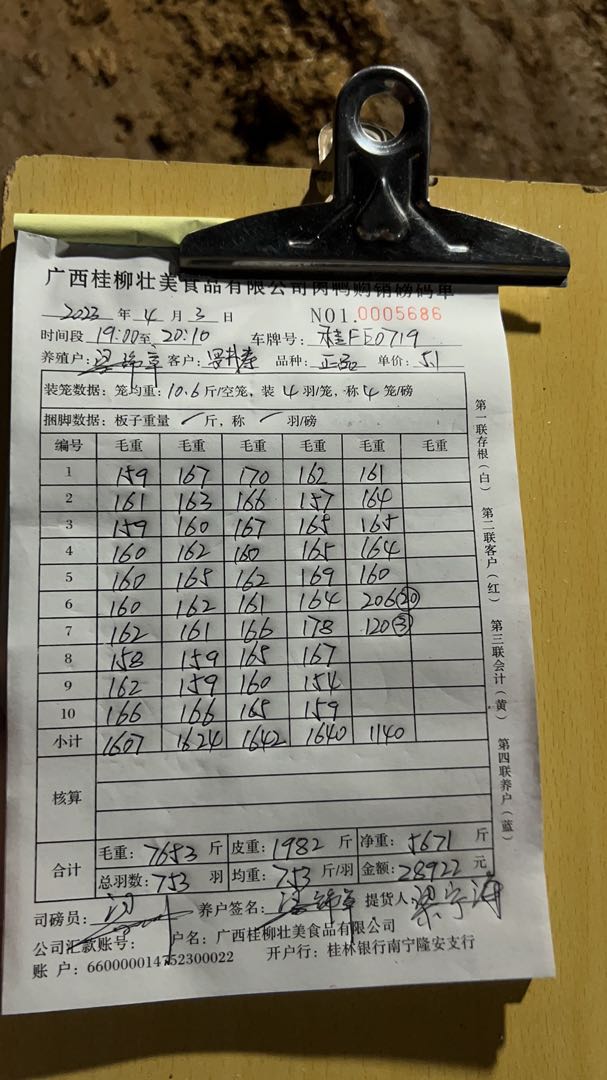 广西桂柳壮美食品有限公司肉鸭购销磅码单
2023 年 4 月 3 日 NO1.0005686
时间段 19:00至 20:10 车牌号: 桂FE0719
养殖户: 客户: 品种: 正品 单价: 5.1
装笼数据: 笼均重: 10.6 斤/空笼, 装 4 羽/笼, 称 4 笼/磅
捆脚数据: 板子重量 / 斤, 称 / 羽/磅
编号 毛重 毛重 毛重 毛重 毛重 毛重
1 159 167 170 162 161
2 161 163 166 157 164
3 159 160 167 165 165
4 160 162 160 165 164
5 160 165 162 169 160
6 160 162 161 164 206 20
7 162 161 166 178 120 3
8 158 159 165 167
9 162 159 160 154
10 166 166 165 159
小计 1607 1624 1642 1640 1140
核算
合计 毛重: 7653 斤 皮重: 1982 斤 净重: 5671 斤
总羽数: 753 羽 均重: 7.53 斤/羽 金额: 28922 元
司磅员: 养户签名: 提货人
公司汇款账号: 户名: 广西桂柳壮美食品有限公司
账 户: 660000014752300022 开户行: 桂林银行南宁隆安支行
第一联存根(白) 第二联客户(红) 第三联会计(黄) 第四联养户(蓝)